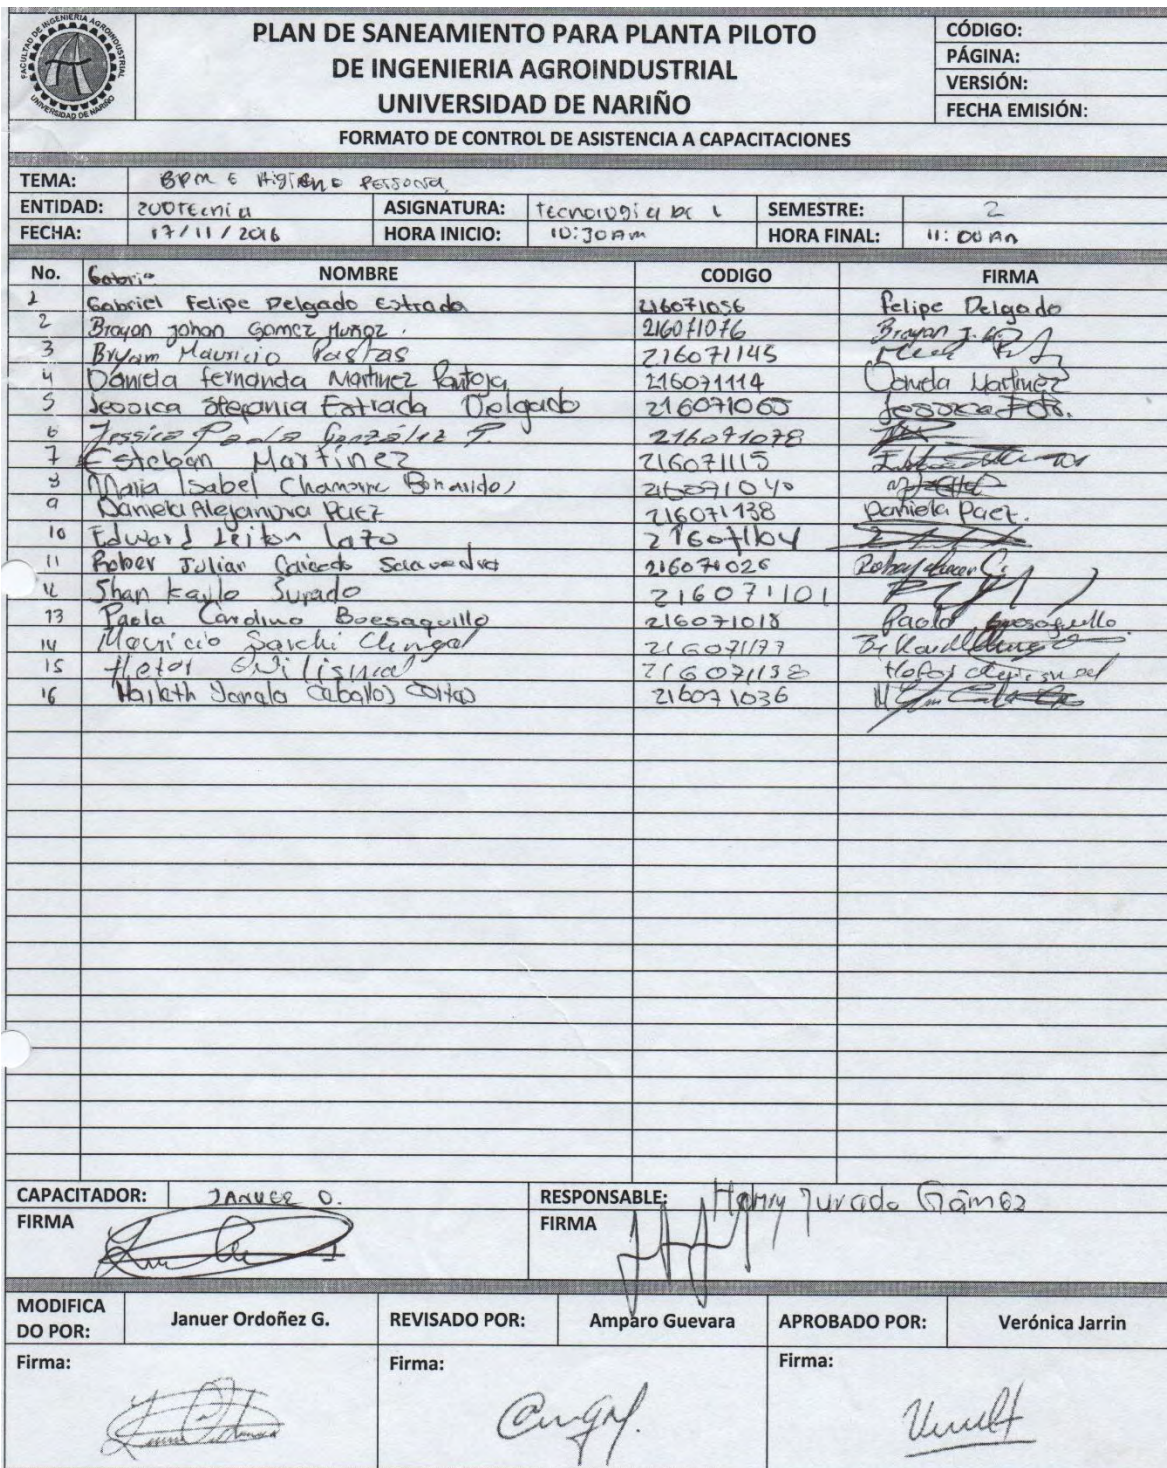 FACULTAD DE INGENIERIA AGROINDUSTRIAL
UNIVERSIDAD DE NARIÑO
PLAN DE SANEAMIENTO PARA PLANTA PILOTO
DE INGENIERIA AGROINDUSTRIAL
UNIVERSIDAD DE NARIÑO
CÓDIGO:
PÁGINA:
VERSIÓN:
FECHA EMISIÓN:
FORMATO DE CONTROL DE ASISTENCIA A CAPACITACIONES
TEMA: BPM E Higiene Personal
ENTIDAD: zootecnia ASIGNATURA: tecnología de L SEMESTRE: 2
FECHA: 17/11/2016 HORA INICIO: 10:30 Am HORA FINAL: 11:00 Am
No. Gabrie NOMBRE CODIGO FIRMA
1 Gabriel Felipe Delgado Estrada 216071056 Felipe Delgado
2 Brayan Johan Gomez Muñoz. 216071076 Brayan J.
3 Bryam Mauricio Pastas 216071145
4 Daniela fernanda Martinez Pantoja 216071114 Daniela Martinez
5 Jessica Stefania Estrada Delgado 216071065 Jessica
6 Jessica Paola González P. 216071078
7 Esteban Martinez 216071115
8 Maria Isabel Chamorro 216071040
9 Daniela Alejandra Paez 216071138 Daniela Paez.
10 Edward Leiton Lazo 216071104
11 Rober Julian Caicedo Saavedra 216071026
12 Shan 216071101
13 Paola Cardina Boesaquillo 216071018 Paola Boesaquillo
14 Mauricio Sarchi 216071177
15 216071138
16 Ceballos 216071036
CAPACITADOR: JANUER O. RESPONSABLE: Henry Jurado Gámez
FIRMA FIRMA
MODIFICA
DO POR: Januer Ordoñez G. REVISADO POR: Amparo Guevara APROBADO POR: Verónica Jarrin
Firma: Firma: Firma: